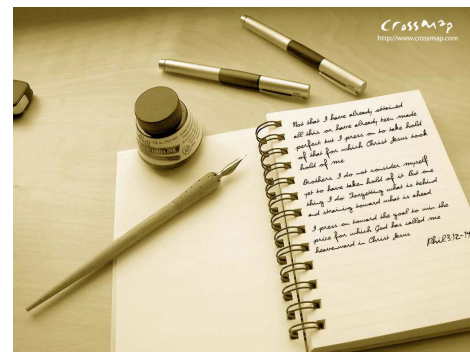 CrossMap
http://www.crossmap.com
Not that I have already attained
all this or have already been made
perfect but I press on to take hold
of that for which Christ Jesus took
hold of me.
Brothers I do not consider myself
yet to have taken hold of it But one
thing I do Forgetting what is behind
and straining toward what is ahead
I press on toward the goal to win the
prize for which God has called me
heavenward in Christ Jesus
Phil3:12-14
INK